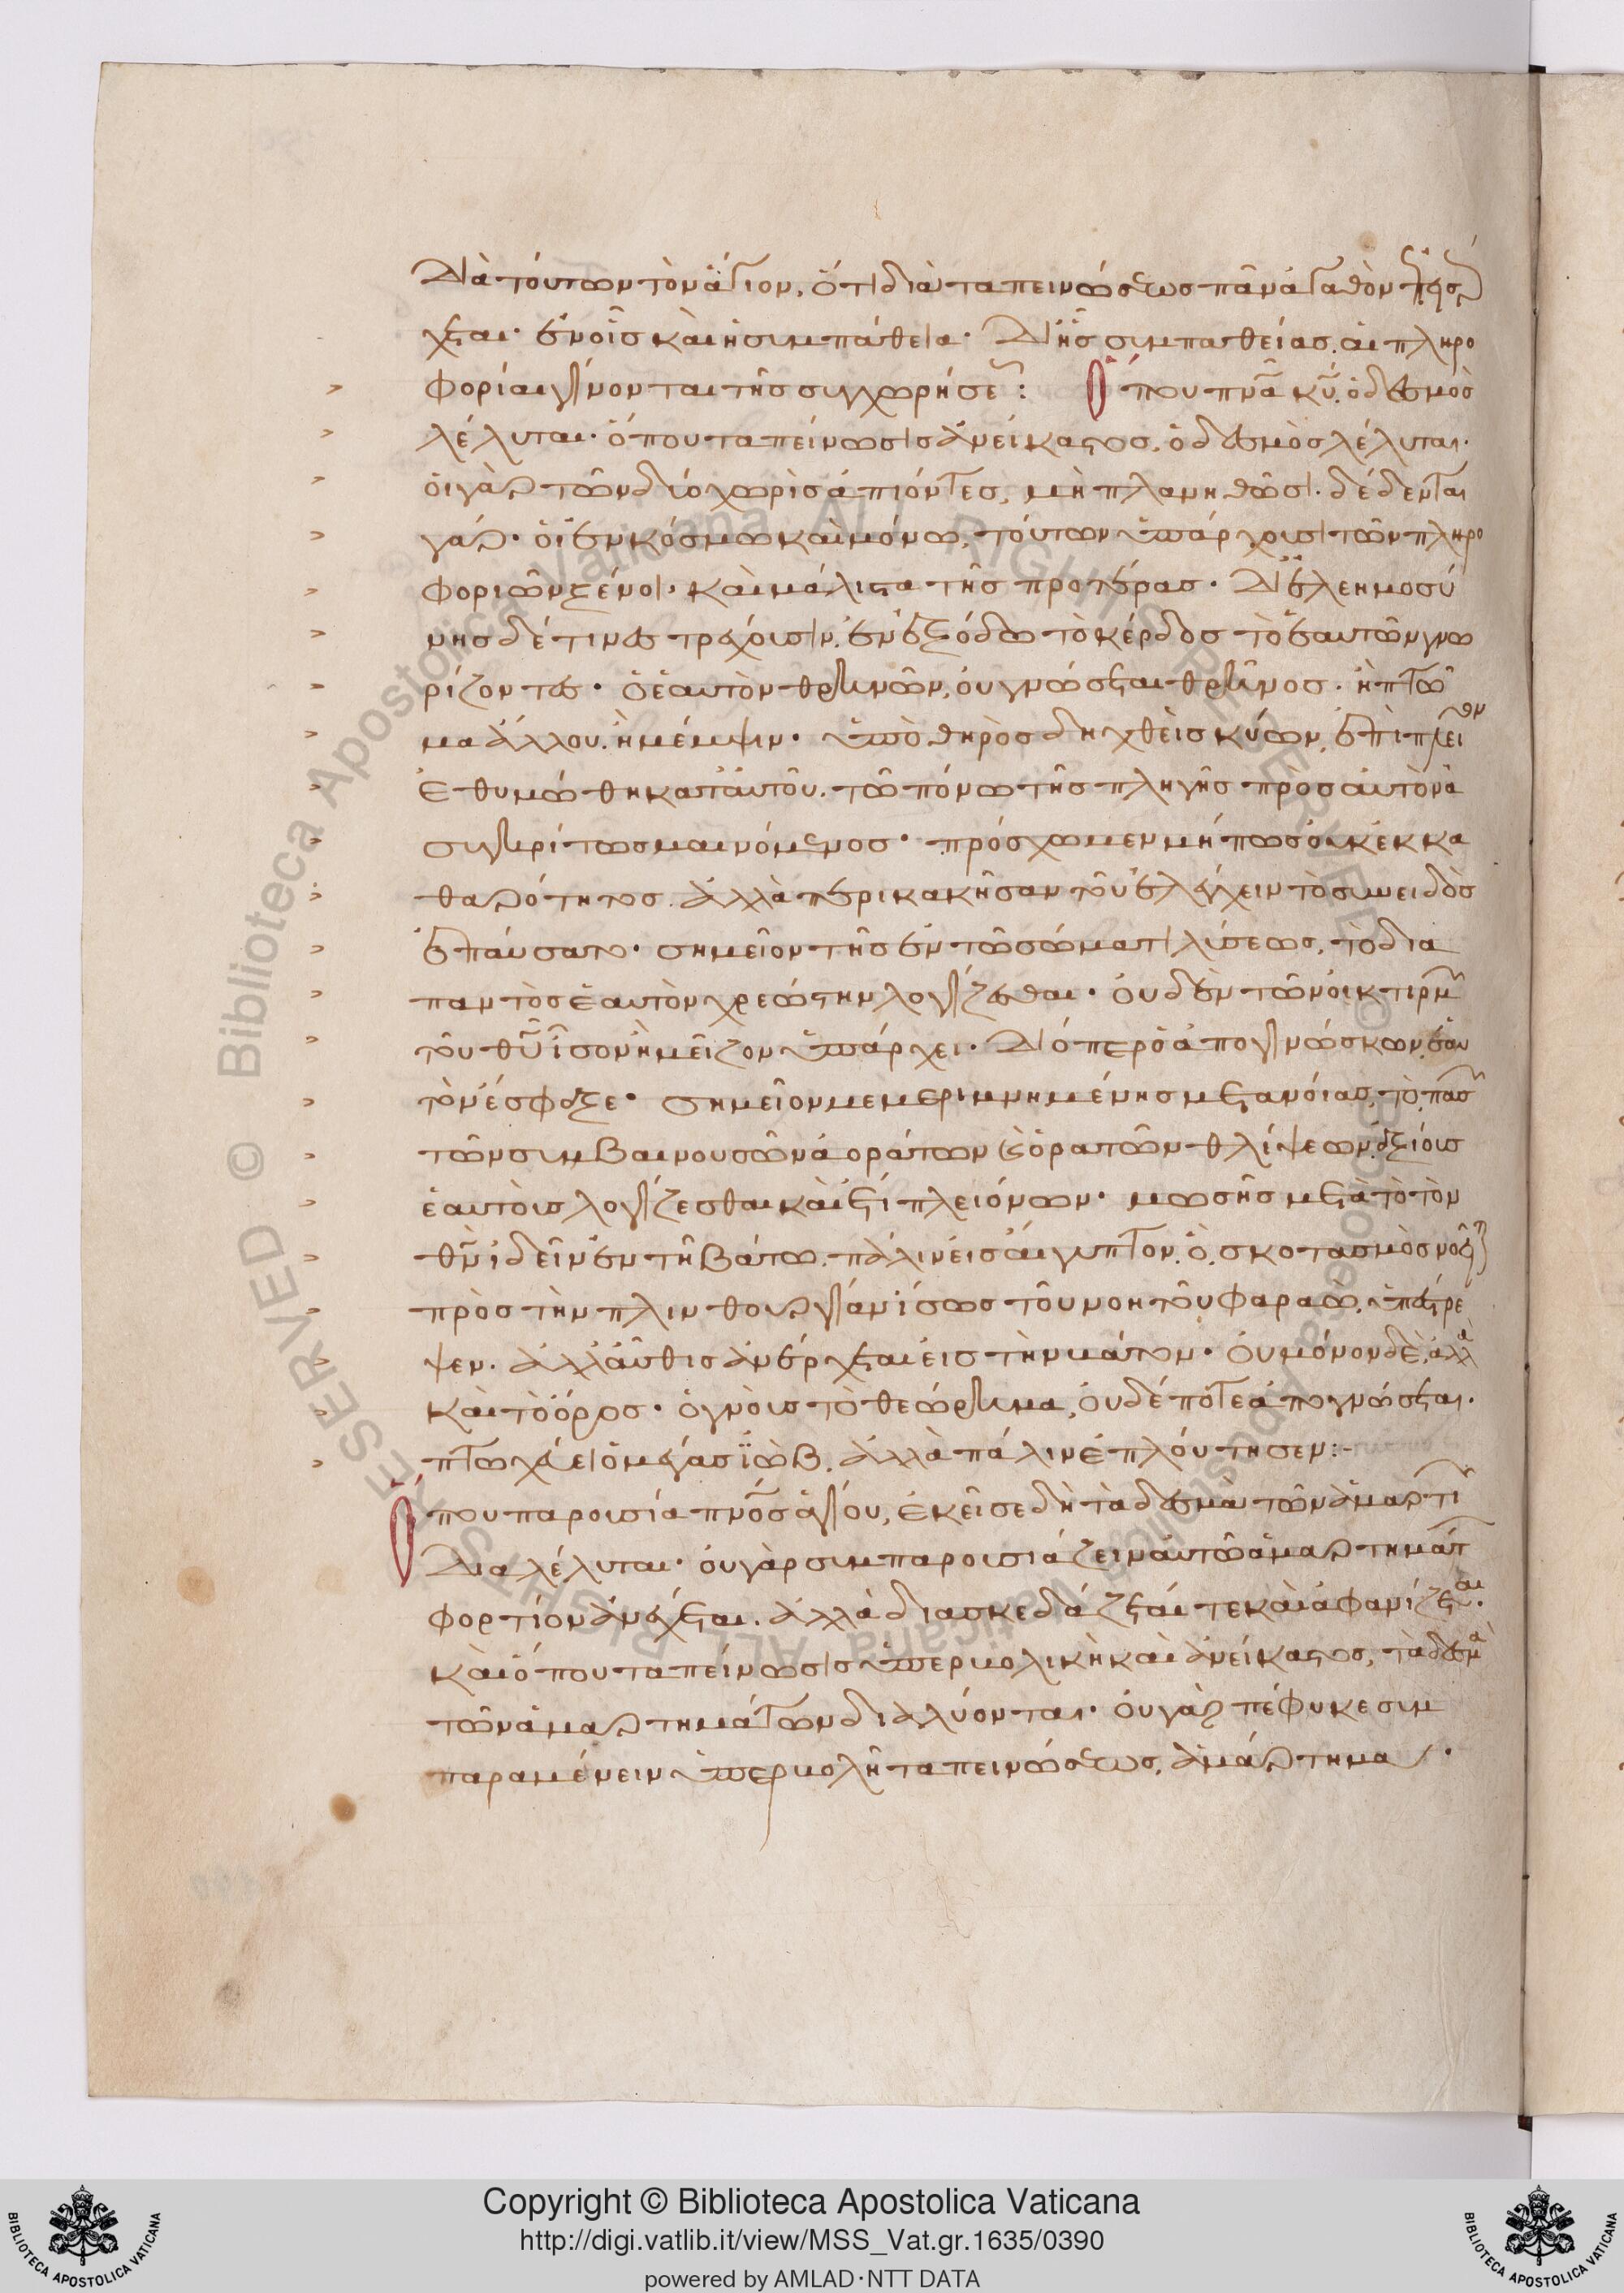 Διὰ τούτων τὸν ἅγιον, ὅτι διὰ ταπεινώσεως πᾶν ἀγαθὸν
χεται· ἐν οἷς καὶ ἡ συμπάθεια· Δι' ἧς συμπαθείας, αἱ πληρο
φορίαι γίνονται τῆς συγχωρήσε: Ὅπου πνα κυ, ὁ δεσμὸς
λέλυται· ὅπου ταπείνωσις ἀνείκαστος, ὁ δεσμὸς λέλυται·
οἱ γὰρ τῶν δύο χωρὶς ἀπιόντες, μὴ πλανηθῶσι· δέδενται
γάρ· οἱ ἐν κόσμω καὶ μόνω, τούτων ὑπάρχουσι τῶν πληρο
φοριῶν ξένοι· καὶ μάλιστα τῆς προτέρας· Δι' ἐλεημοσύ
νης δέ τινες τρέχουσιν, ἐν ἐξόδω τὸ κέρδος τὸ ἑαυτῶν γνω
ρίζοντες· ὁ ἑαυτὸν θρηνῶν, οὐ γνώσεται θρῆνος· ἢ πτῶ
μα ἄλλου, ἢ μέμψιν· ὑπὸ θηρὸς δηχθεὶς κύων, ἐπὶ πλεῖ
ἐθυμώθη κατ' αὐτοῦ, τῶ πόνω τῆς πληγῆς πρὸς αὐτὸν ἀ
συγκρίτως μαινόμενος· πρόσχωμεν μήπως οὐκ ἐκ κα
θαρότητος, ἀλλὰ περικακῆσαν τοῦ ἐλέγχειν τὸ συνειδὸς
ἐπαύσατο· σημεῖον τῆς ἐν τῶ σώματι λύσεως, τὸ δια
παντὸς ἑαυτὸν χρεώστην λογίζεσθαι· οὐδὲν τῶν οἰκτιρμ
τοῦ θυ ἶσον ἢ μεῖζον ὑπάρχει· Διόπερ ὁ ἀπογινώσκων, ἑαυ
τὸν ἔσφαξε· σημεῖον μεμεριμνημένης μετανοίας, τὸ πασ
τῶν συμβαινουσῶν ἀοράτων καὶ ὁρατῶν θλίψεων, ἀξίους
ἑαυτοὺς λογίζεσθαι καὶ ἔτι πλειόνων· μωσῆς μετὰ τὸ τὸν
θν ἰδεῖν ἐν τῆ βάτω, πάλιν εἰς αἴγυπτον, ὁ σκοτασμὸς
πρὸς τὴν πλινθουργίαν ἴσως τοῦ νοητοῦ φαραώ, ὑπέστρε
ψεν. ἀλλ' αὖθις ἀνέρχεται εἰς τὴν βάτον· οὐ μόνον δὲ, ἀλλὰ
καὶ τὸ ὄρος· ὁ γνοὺς τὸ θεώρημα, οὐδέποτε ἀπογνώσεται·
πτωχεύει ὁ μέγας ἰώβ, ἀλλὰ πάλιν ἐπλούτησεν:-
Ὅπου παρουσία πνος ἁγίου, ἐκεῖσε δὴ τὰ δεσμὰ τῶν ἁμαρτι
Διαλέλυται· οὐ γὰρ συμπαρουσιάζειν αὐτῶ ἁμαρτημάτ
φορτίον ἀνέχεται. ἀλλὰ διασκεδάζεταί τε καὶ ἀφανίζεται·
καὶ ὅπου ταπείνωσις ὑπερβολικὴ καὶ ἀνείκαστος, τὰ δεσμὰ
τῶν ἁμαρτημάτων διαλύονται· οὐ γὰρ πέφυκε συμ
παραμένειν ὑπερβολῆ ταπεινώσεως, ἁμάρτημα·
Copyright © Biblioteca Apostolica Vaticana
http://digi.vatlib.it/view/MSS_Vat.gr.1635/0390
powered by AMLAD·NTT DATA